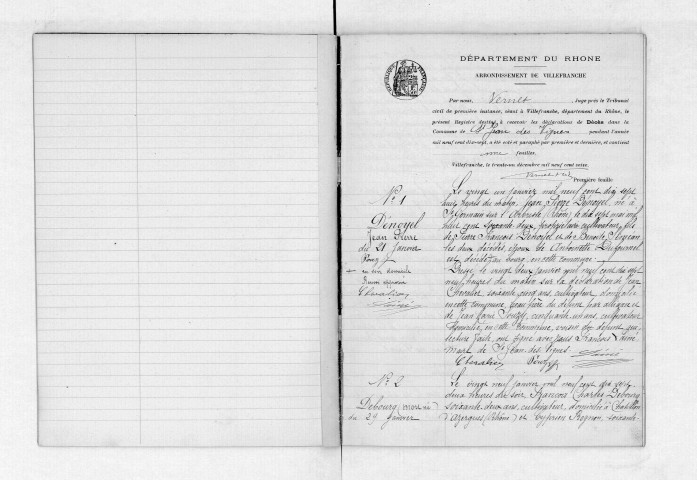 DÉPARTEMENT DU RHONE
ARRONDISSEMENT DE VILLEFRANCHE
RÉPUBLIQUE FRANÇAISE
Par nous, Vernet Juge près le Tribunal
civil de première instance, séant à Villefranche, département du Rhône, le
présent Registre destiné à recevoir les déclarations de Décès dans la
Commune de St Jean des Vignes pendant l'année
mil neuf cent dix-sept, a été coté et paraphé par première et dernière, et contient
feuilles.
Villefranche, le trente-un décembre mil neuf cent seize.
Première feuille
N° 1
Dénoyel
Jean Pierre
du 21 Janvier
Bourg
en son domicile
Chevalier
Le vingt un janvier mil neuf cent dix sept
huit heures du matin, Jean Pierre Dénoyel, né à
St Germain sur l'Arbresle (Rhône) le dix sept mai mil
huit cent soixante deux, propriétaire cultivateur, fils
de Pierre François Dénoyel et de Benoite
tous deux décédés, époux de Antoinette Dufournel
est décédé au bourg, en cette commune.
Dressé le vingt deux janvier mil neuf cent dix sept
neuf heures du matin sur la déclaration de Jean
Chevalier, soixante cinq ans, cultivateur, domicilié
en cette commune, beau frère du défunt
de Jean Marie cinquante un ans, cultivateur
domicilié en cette commune, voisin du défunt, qui
lecture faite, ont signé avec nous François
Maire de St Jean des Vignes.
Chevalier
N° 2
Debourg (mort né)
du 29 Janvier
Le vingt neuf janvier mil neuf cent dix sept
deux heures du soir, François Charles Debourg
soixante deux ans, cultivateur, domicilié à Chatillon
d'Azergues (Rhône) et Cyprien soixante